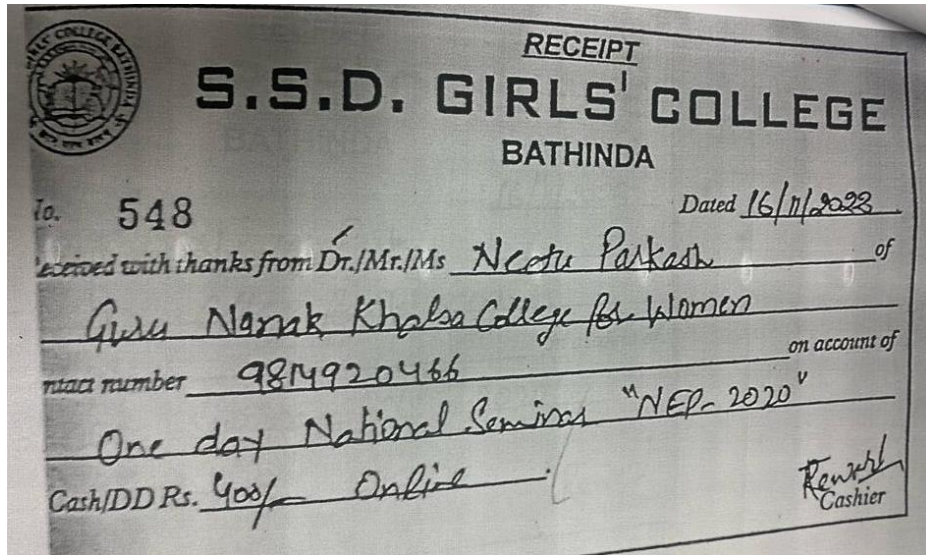 RECEIPT
S.S.D. GIRLS' COLLEGE
BATHINDA
No. 548 Dated 16/11/2023
eceived with thanks from Dr./Mr./Ms Neetu Parkash of
Guru Nanak Khalsa College for Women
ntact number 9814920466 on account of
One day National Seminar "NEP-2020"
Cash/DD Rs. 400/- Online
Cashier